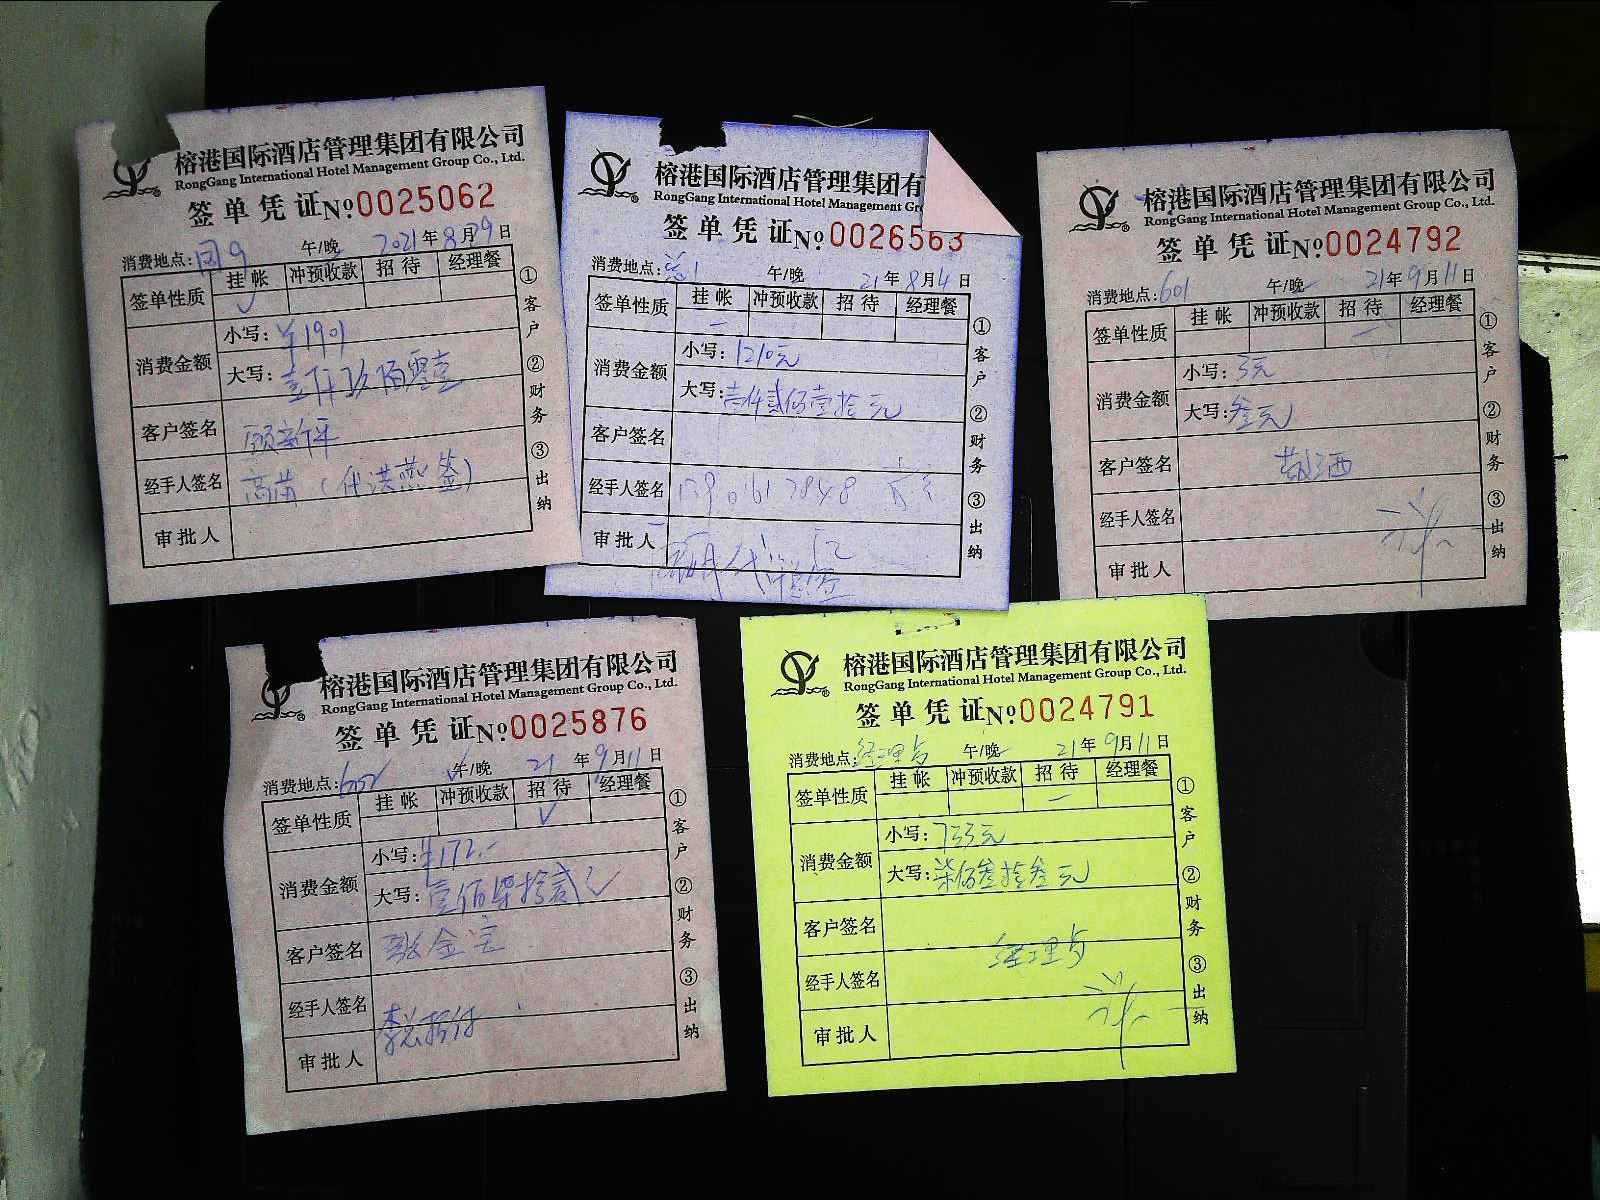 榕港国际酒店管理集团有限公司
RongGang International Hotel Management Group Co., Ltd.
签单凭证 No 0025062
消费地点: 午/晚 2021年8月9日
签单性质 挂帐 冲预收款 招待 经理餐
消费金额 小写: ¥1901
大写: 壹仟玖佰零壹
客户签名 顾新年
经手人签名 (代洪燕签)
审批人
①客户 ②财务 ③出纳
榕港国际酒店管理集团有
RongGang International Hotel Management Gr
签单凭证 No 0026563
消费地点: 总1 午/晚 21年8月4日
签单性质 挂帐 冲预收款 招待 经理餐
消费金额 小写: 1210元
大写: 壹仟贰佰壹拾元
客户签名
经手人签名
审批人
①客户 ②财务 ③出纳
榕港国际酒店管理集团有限公司
RongGang International Hotel Management Group Co., Ltd.
签单凭证 No 0024792
消费地点: 601 午/晚 21年9月11日
签单性质 挂帐 冲预收款 招待 经理餐
消费金额 小写: 3元
大写: 叁元
客户签名 敬酒
经手人签名
审批人
①客户 ②财务 ③出纳
榕港国际酒店管理集团有限公司
RongGang International Hotel Management Group Co., Ltd.
签单凭证 No 0025876
消费地点: 602 午/晚 21年9月11日
签单性质 挂帐 冲预收款 招待 经理餐
消费金额 小写: ¥172.-
大写: 壹佰柒拾贰元
客户签名 张金宝
经手人签名 李总招待
审批人
①客户 ②财务 ③出纳
榕港国际酒店管理集团有限公司
RongGang International Hotel Management Group Co., Ltd.
签单凭证 No 0024791
消费地点: 经理房 午/晚 21年9月11日
签单性质 挂帐 冲预收款 招待 经理餐
消费金额 小写: 733元
大写: 柒佰叁拾叁元
客户签名
经手人签名 经理房
审批人
①客户 ②财务 ③出纳